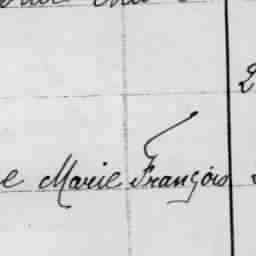 2
e Marie François